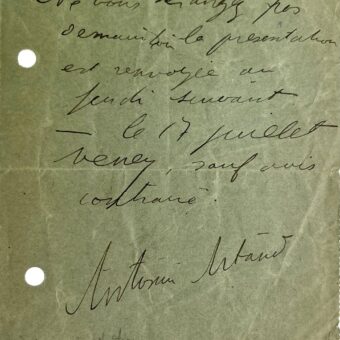 Ne vous dérangez pas
demain la présentation
est renvoyée au
jeudi suivant
— le 17 juillet
Venez, sauf avis
contraire.
Antonin Artaud